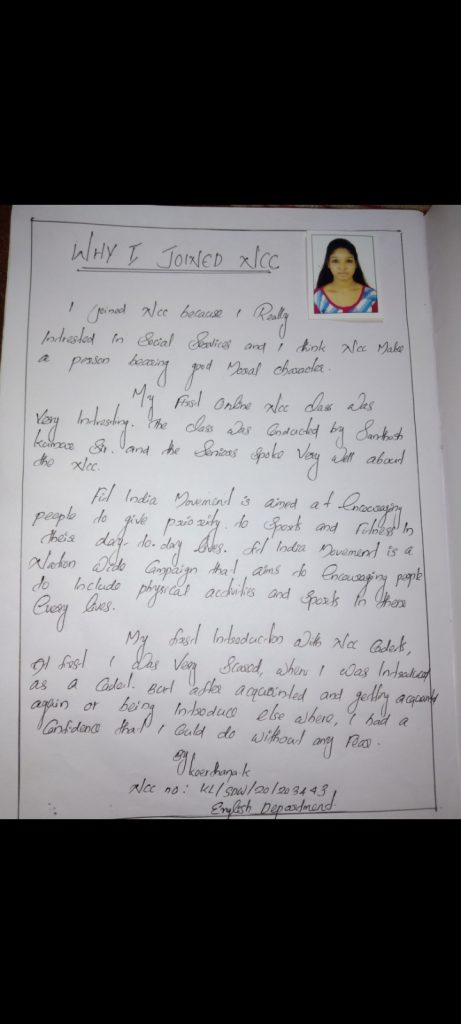 WHY I JOINED NCC
I joined NCC because I Really
Intrested in Social Services and I think NCC Make
a person bearing good Moral character.
My First Online NCC class was
Very Intresting. The class was Conducted by Santhosh
Kumar Sir. and the Seniors Spoke Very Well about
the NCC.
Fit India Movement is aimed at Encouraging
people to give priority to Sports and Fitness In
their day-to-day lives. Fit India Movement is a
Nation Wide Campaign that aims to Encouraging people
to Include physical activities and Sports In there
Every lives.
My first Introduction with NCC Cadets,
At first I was Very Scared, When I was Introduced
as a Cadet. But after acquainted and getting acquainted
again or being Introduce else where, I had a
Confidence that I Could do without any Fear.
By
Keerthana.k
NCC no: KL/SDW/20/203443
English Department